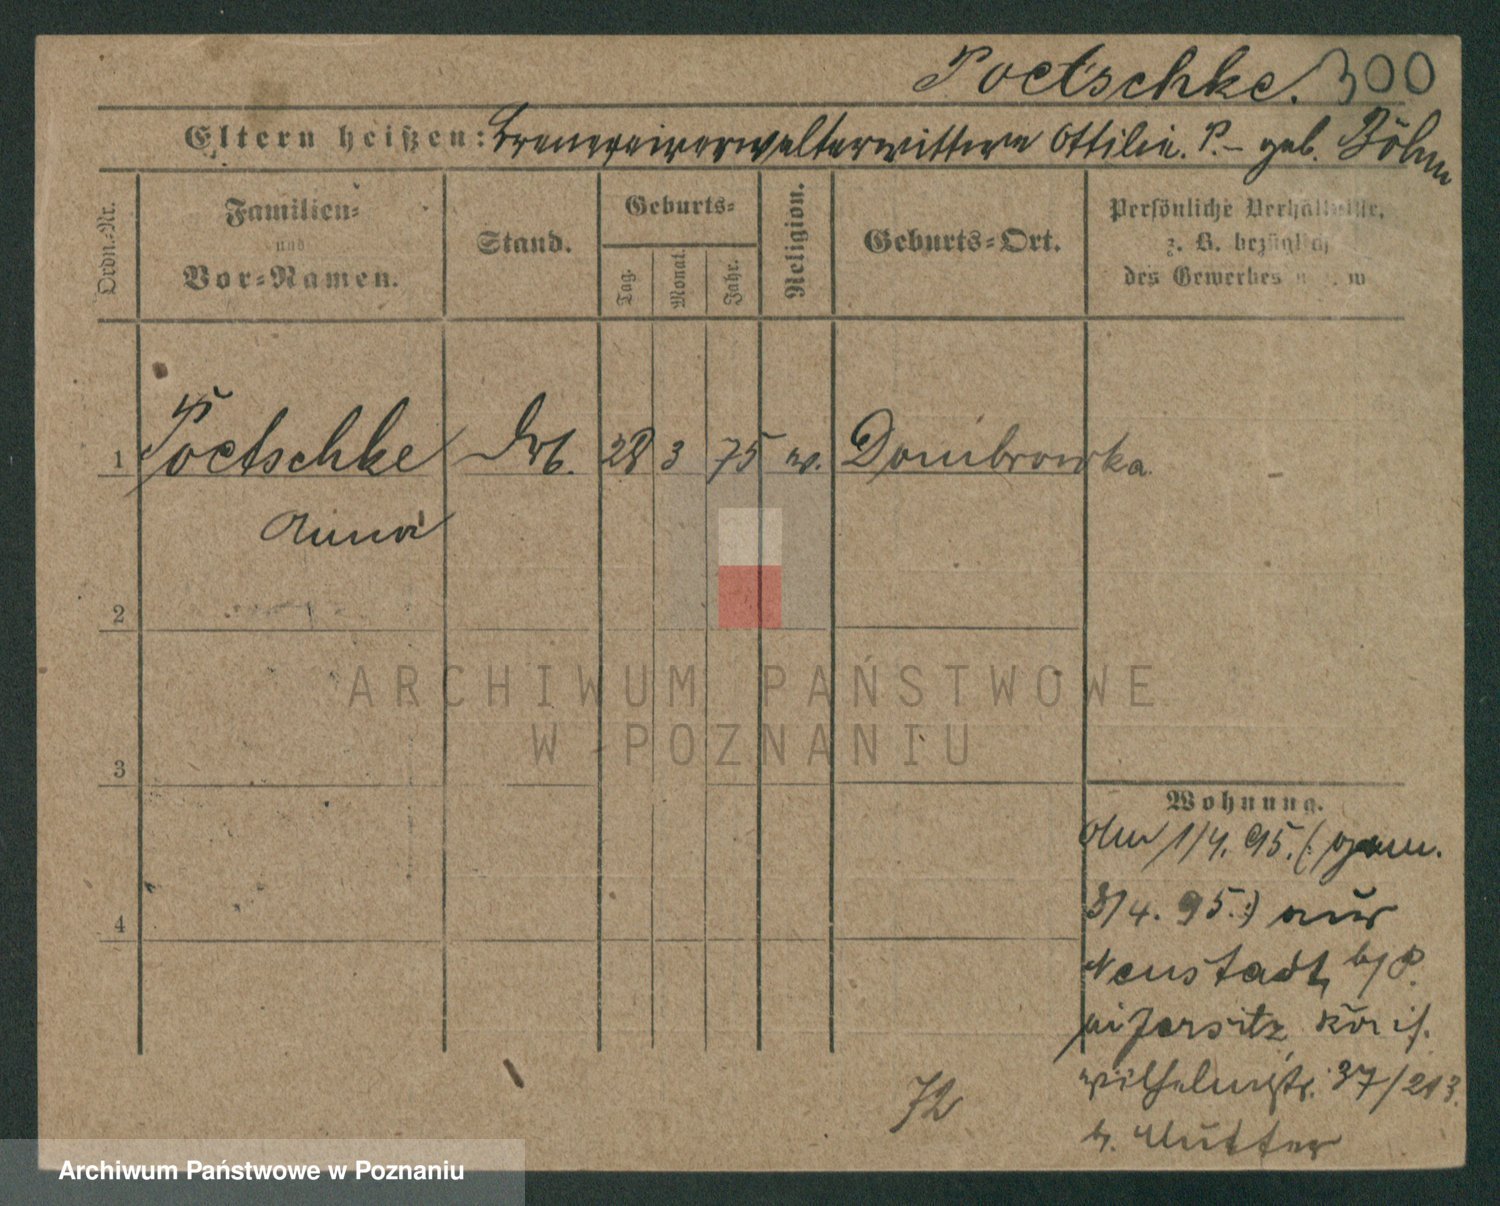 Poetschke. 300
Eltern heißen: Brennereiverwalterwittwe Ottilie P. – geb. Böhm
Ordn.-Nr.
Familien-
und
Vor-Namen.
Stand.
Geburts-
Tag.
Monat.
Jahr.
Religion.
Geburts-Ort.
Persönliche Verhältnisse,
z. B. bezüglich
des Gewerbes
1 Poetschke 28 3 75 Dombrowka
Anna
2
3
4
Wohnung.
1/4. 95. (: gem.
3/4. 95. :) aus
Neustadt b/P.
in Jersitz
Wilhelmstr. 37/213.
b. Mutter
72
ARCHIWUM PAŃSTWOWE
W POZNANIU
Archiwum Państwowe w Poznaniu